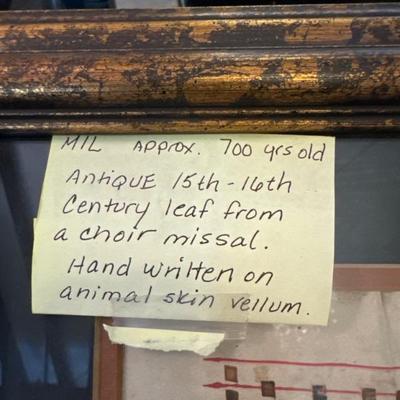 MIL Approx. 700 yrs old
Antique 15th-16th
Century leaf from
a choir missal.
Hand written on
animal skin vellum.